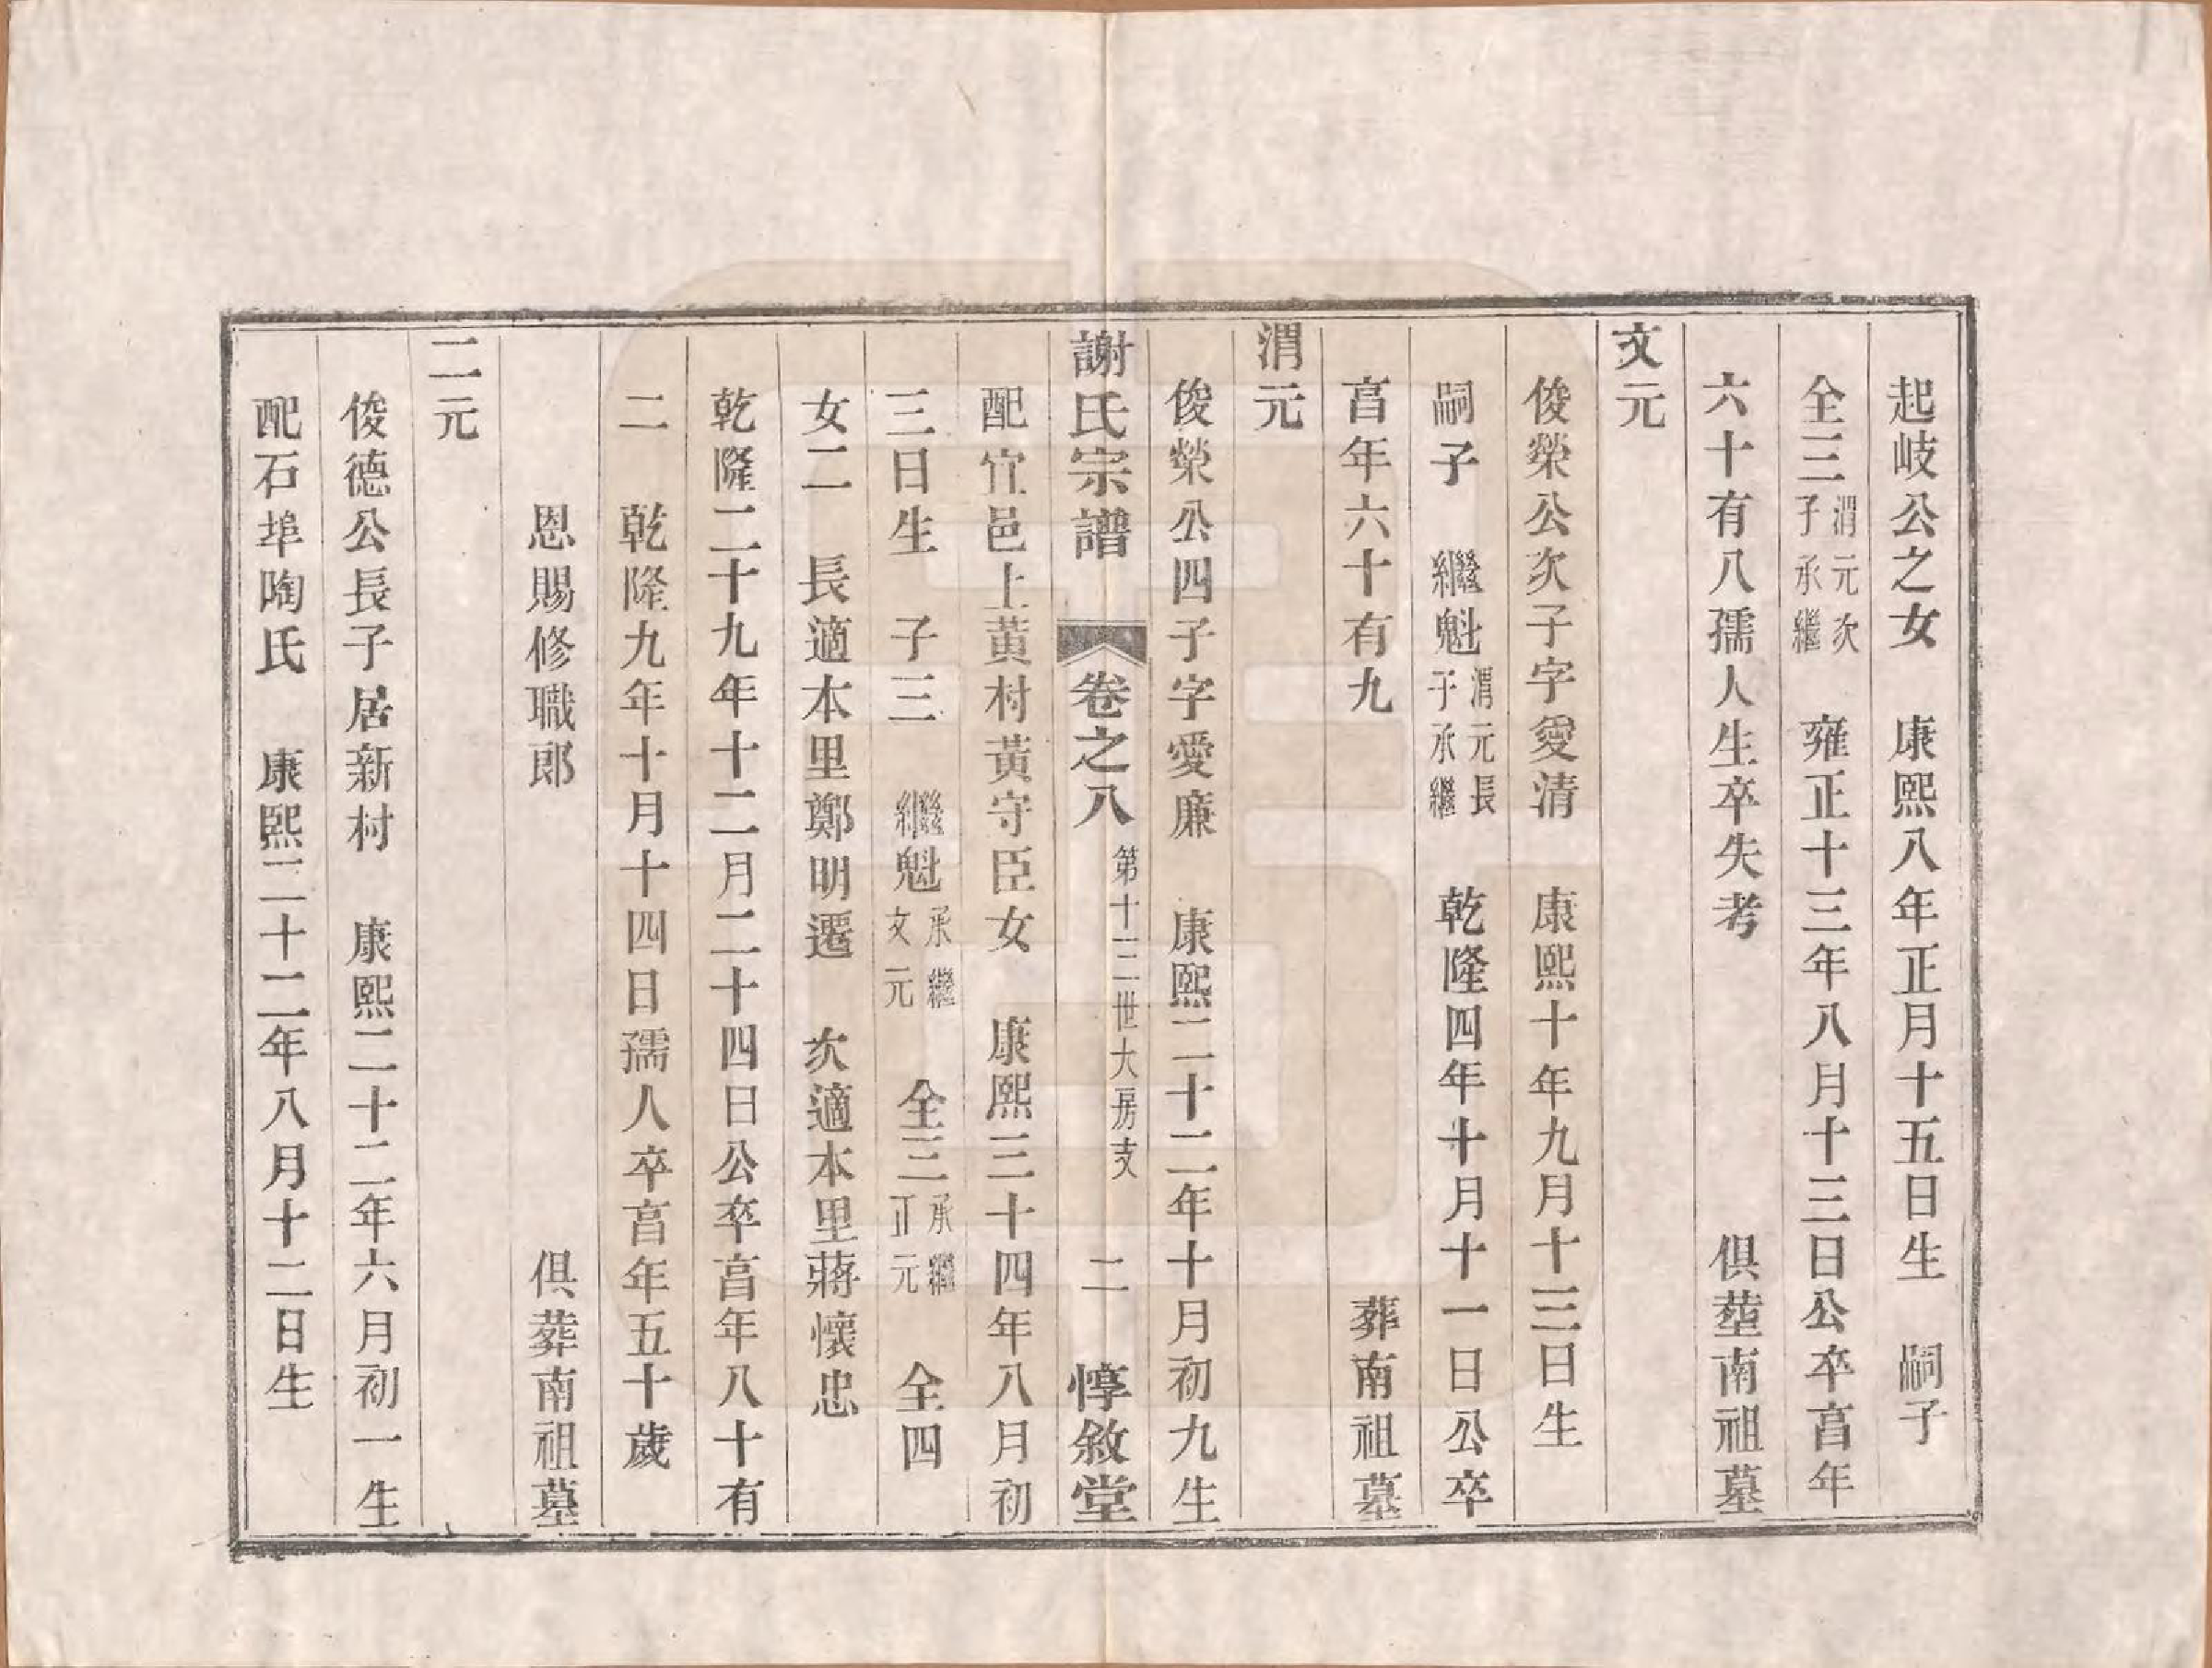 起岐公之女　康熙八年正月十五日生　嗣子
全三渭元次子承繼　雍正十三年八月十三日公卒亯年
六十有八孺人生卒失考　俱塟南祖墓
文元
俊榮公次子字愛清　康熙十年九月十三日生
嗣子　繼魁渭元長子承繼　乾隆四年十月十一日公卒
亯年六十有九　葬南祖墓
渭元
俊榮公四子字愛廉　康熙二十二年十月初九生
謝氏宗譜　卷之八　第十二世大房支　二　惇敘堂
配宜邑上黃村黃守臣女　康熙三十四年八月初
三日生　子三　繼魁承繼文元　全三承繼正元　全四
女二　長適本里鄭明遷　次適本里蔣懷忠
乾隆二十九年十二月二十四日公卒亯年八十有
二　乾隆九年十月十四日孺人卒亯年五十歲
恩賜修職郎　俱葬南祖墓
二元
俊德公長子居新村　康熙二十二年六月初一生
配石埠陶氏　康熙二十二年八月十二日生